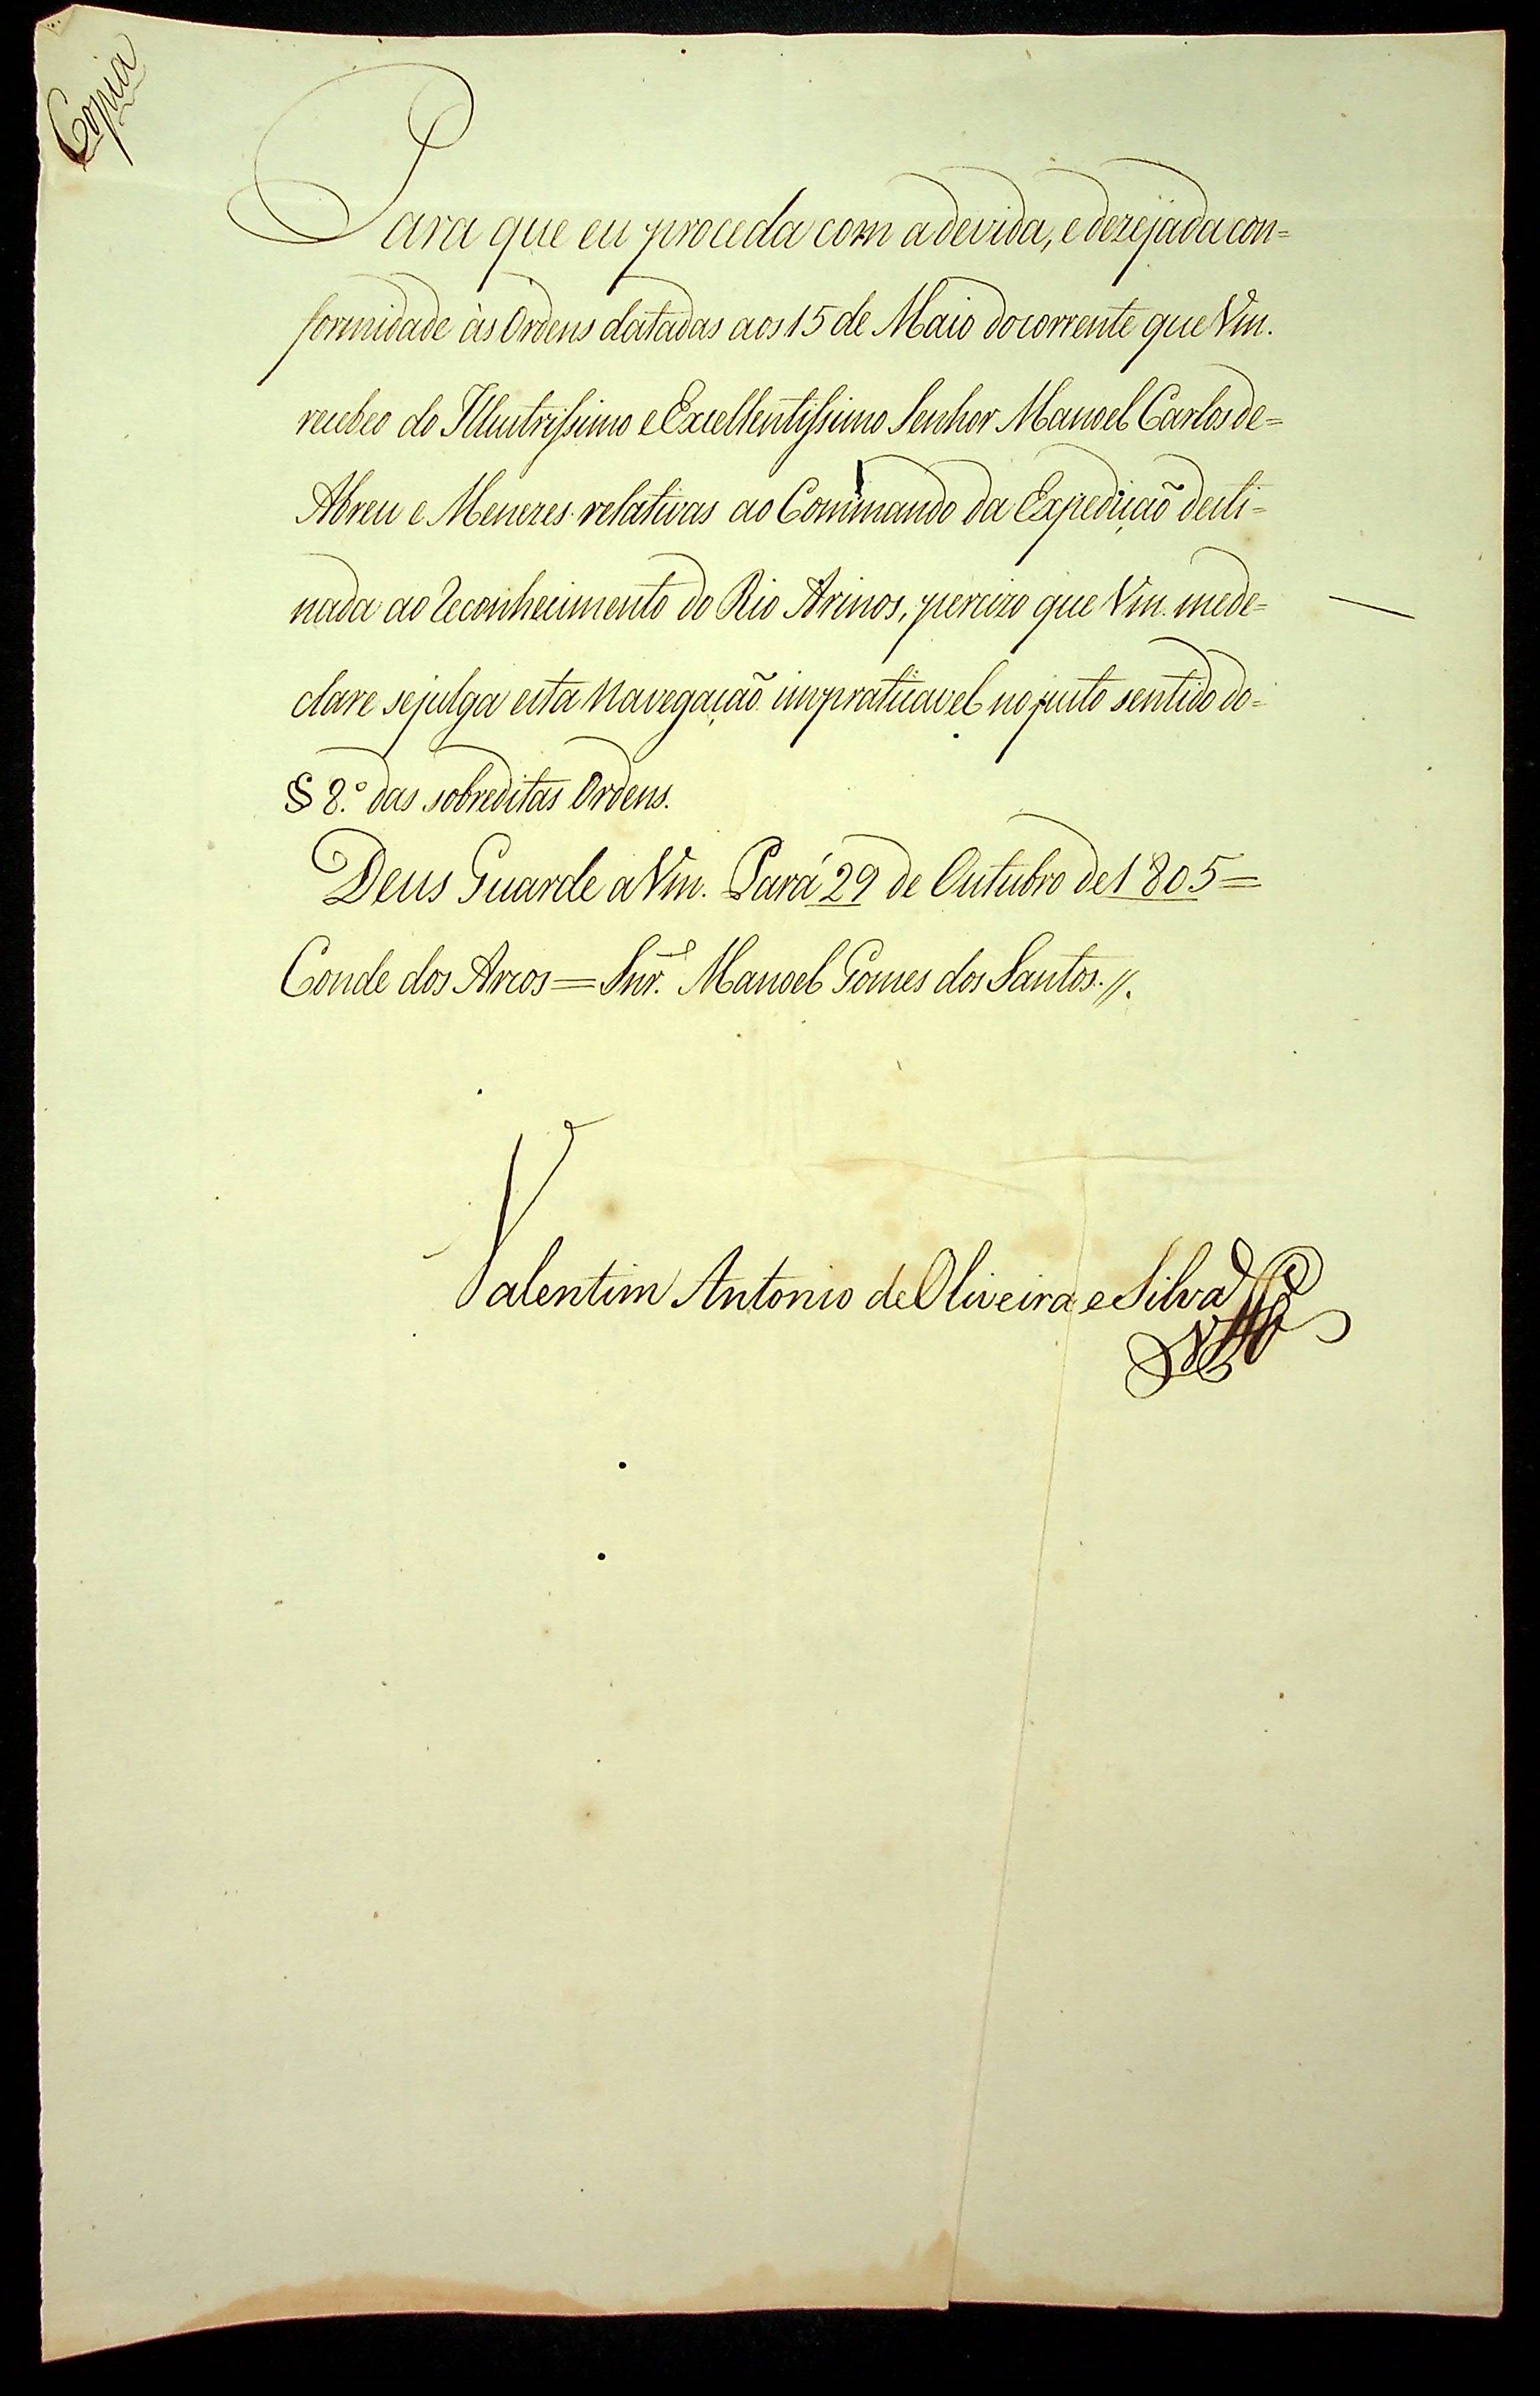 Copia
Para que eu proceda com a devida, e dezejada con=
formidade às Ordens datadas aos 15 de Maio do corrente que Vm.
recebeo do Illustrissimo e Excellentissimo Senhor Manoel Carlos de=
Abreu e Menezes relativas ao Commando da Expedição desti=
nada ao Reconhecimento do Rio Arinos, percizo que Vm. me de=
clare se julga esta Navegação impraticavel no justo sentido do=
§ 8.º das sobreditas Ordens.
Deus Guarde a Vm. Pará 29 de Outubro de 1805=
Conde dos Arcos=Snr. Manoel Gomes dos Santos.//.
Valentim Antonio de Oliveira e Silva